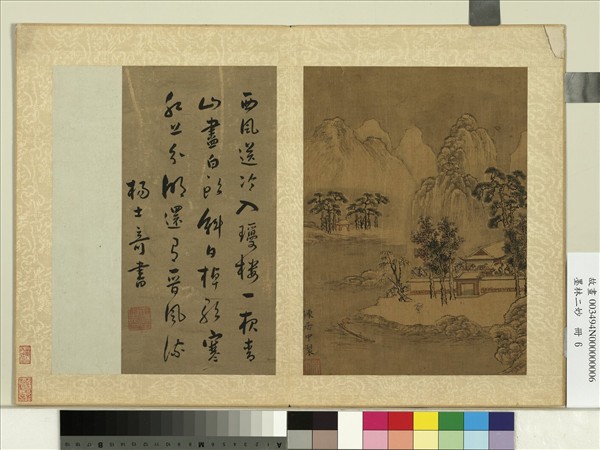 西風送冷入瓊樓一夜青
山盡白頭斜日棹歌寒
江上分明還有晉風流
楊士奇書
故畫 003494N000000006
墨林二妙 冊 6